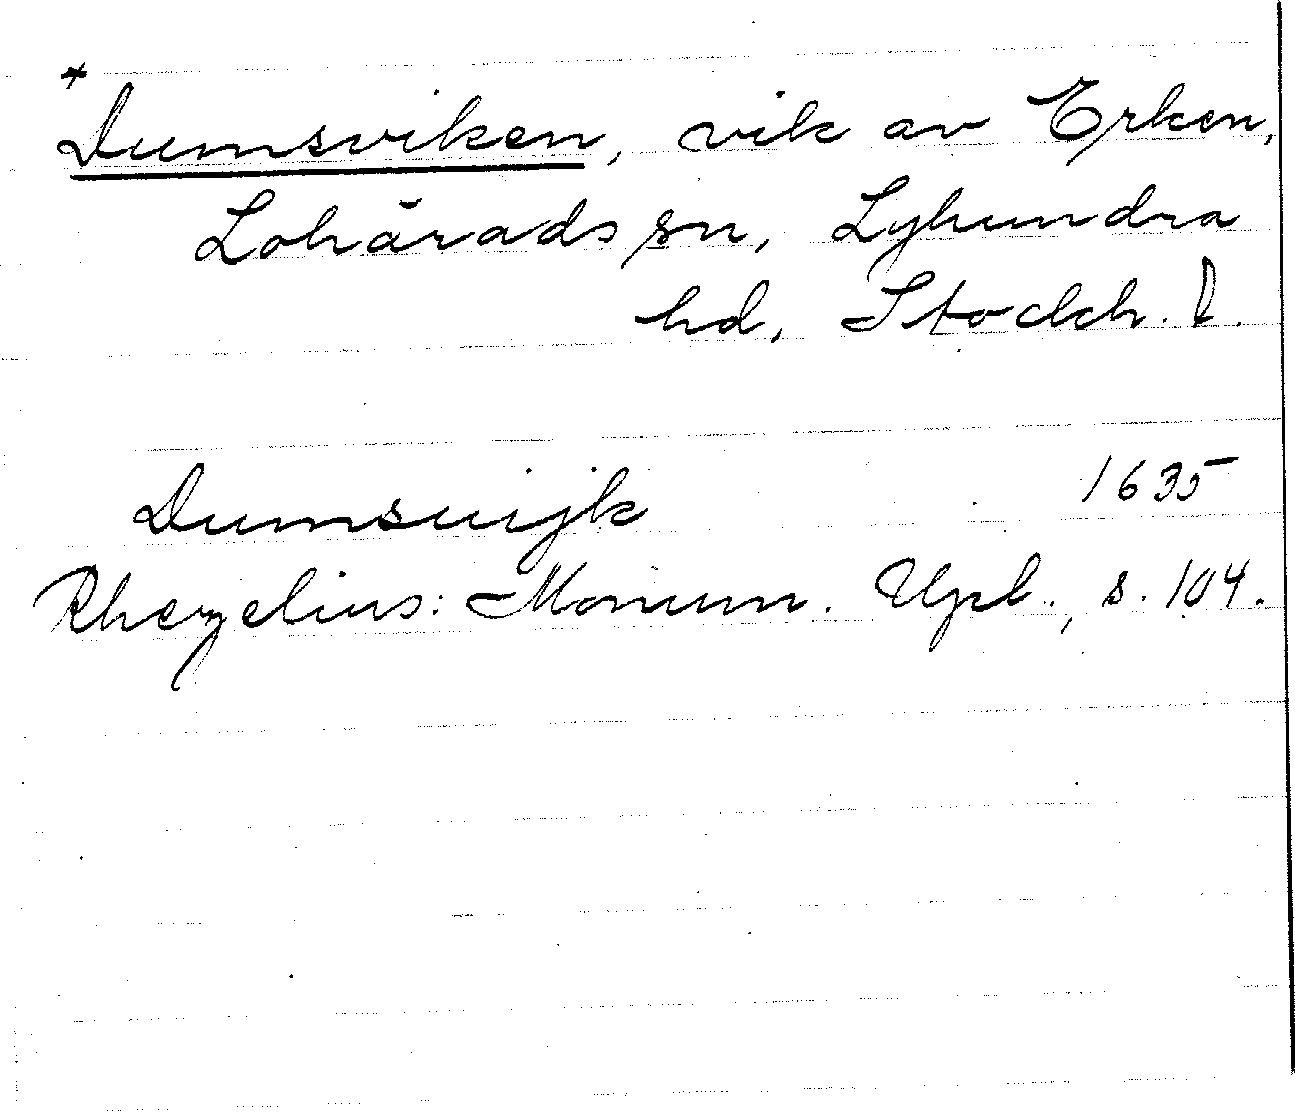 *
Dumsviken, vik av Erken,
Lohärads sn, Lyhundra
hd, Stockh. l.
Dumsuijk 1635
Rhezelius: Monum. Upl., s. 104.